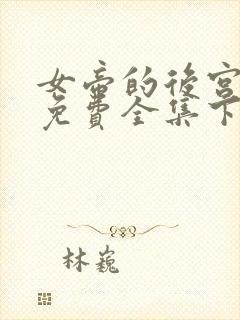 女帝的後宮
免費全集下
林巍